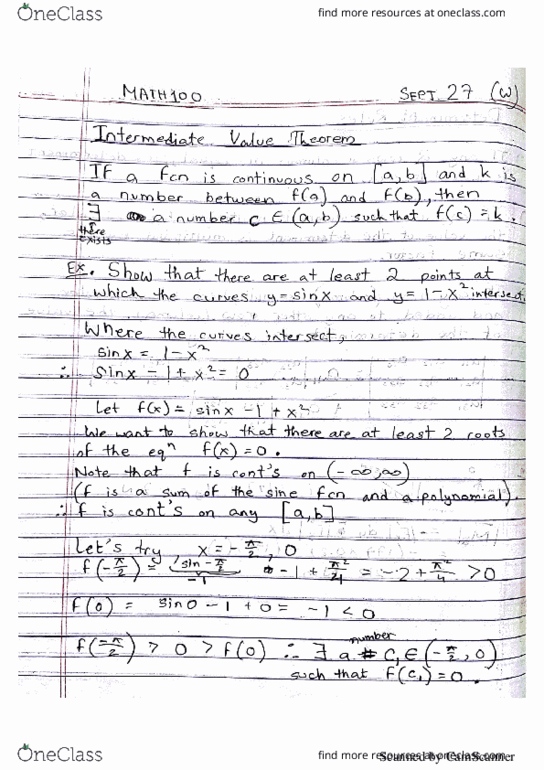 OneClass
find more resources at oneclass.com
MATH100 SEPT 27 (W)
Intermediate Value Theorem
If a fcn is continuous on [a,b] and k is
a number between f(a) and f(b), then
∃ a number c ∈ (a,b) such that f(c) = k.
there
exists
Ex. Show that there are at least 2 points at
which the curves y=sinx and y=1-x² intersect.
Where the curves intersect,
sinx = 1-x²
∴ sinx - 1 + x² = 0
Let f(x) = sinx - 1 + x²
We want to show that there are at least 2 roots
of the eqⁿ f(x) = 0.
Note that f is cont's on (-∞,∞)
(f is a sum of the sine fcn and a polynomial).
∴ f is cont's on any [a,b]
Let's try x = -π/2, 0
f(-π/2) = sin -π/2 - 1 + π²/4 = -2 + π²/4 > 0
-1
f(0) = sin0 - 1 + 0 = -1 < 0
number
f(-π/2) > 0 > f(0) ∴ ∃ a # c₁ ∈ (-π/2, 0)
such that f(c₁) = 0.
OneClass
find more resources at oneclass.com
Scanned by CamScanner